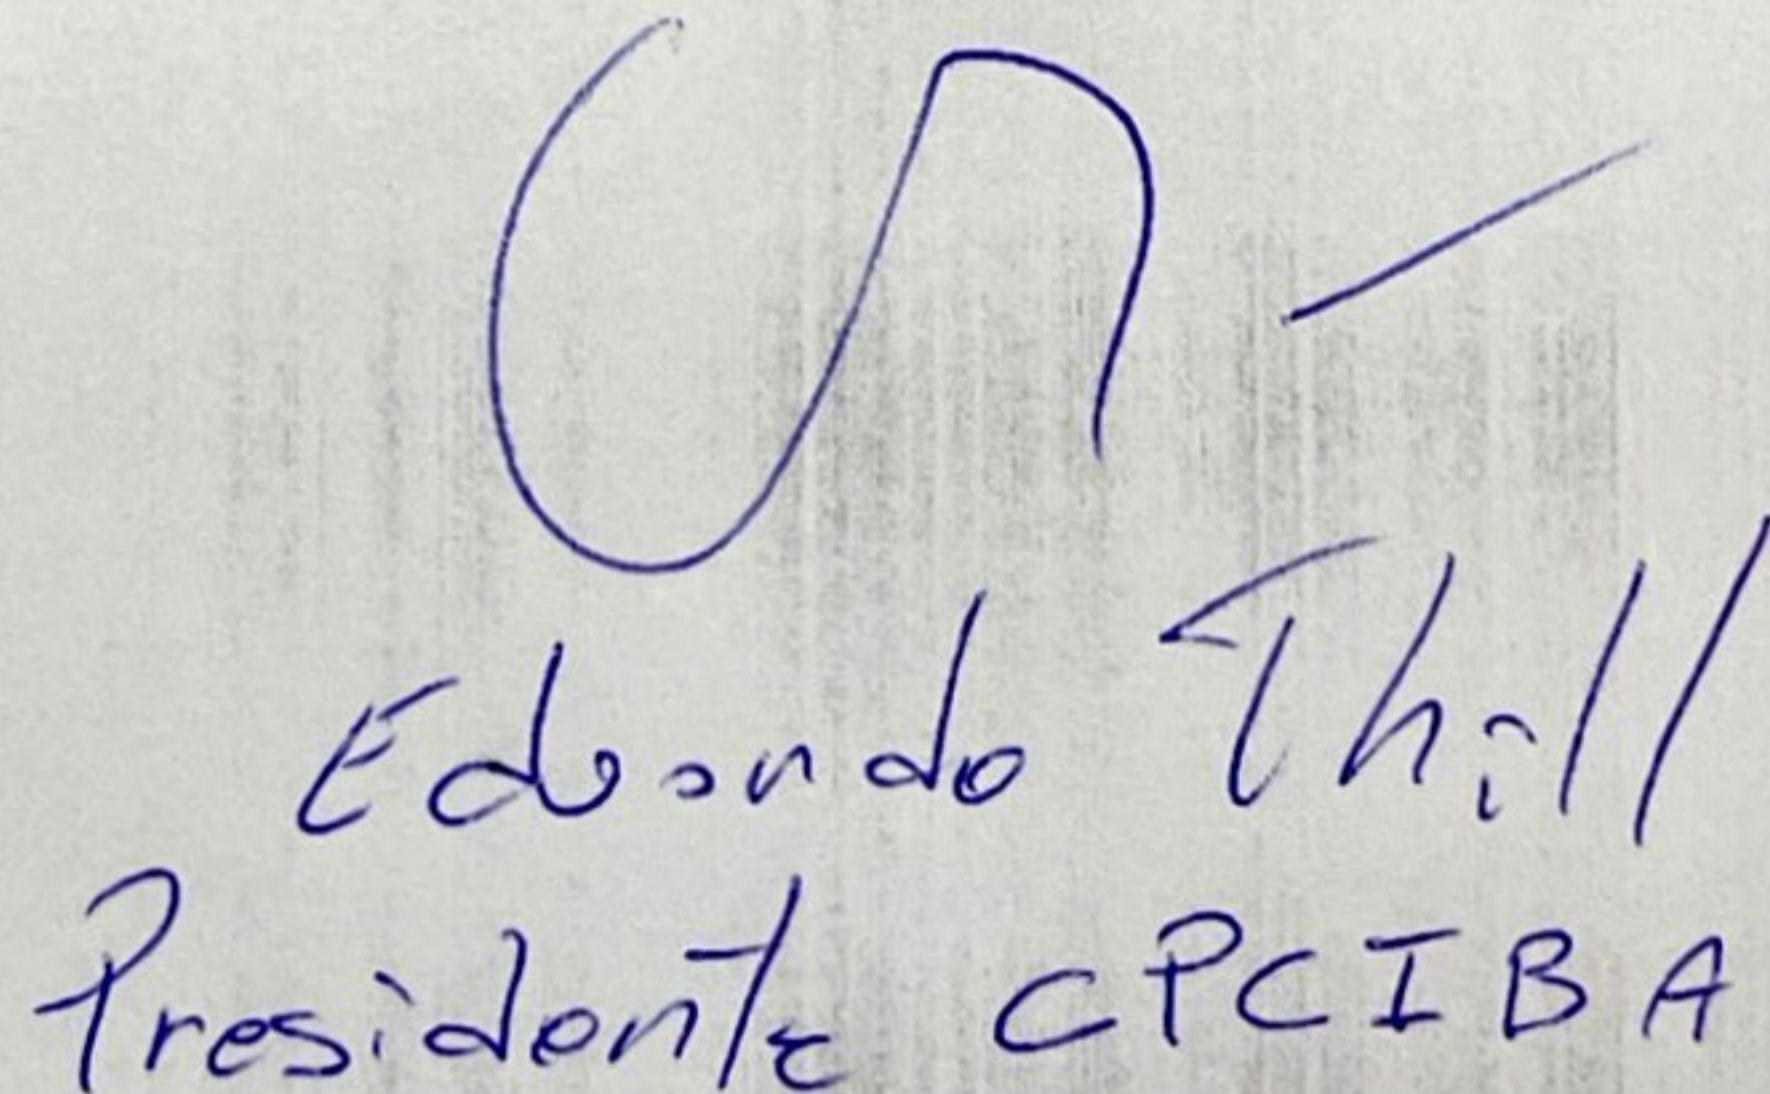 Eduardo Thill
Presidente CPCIBA